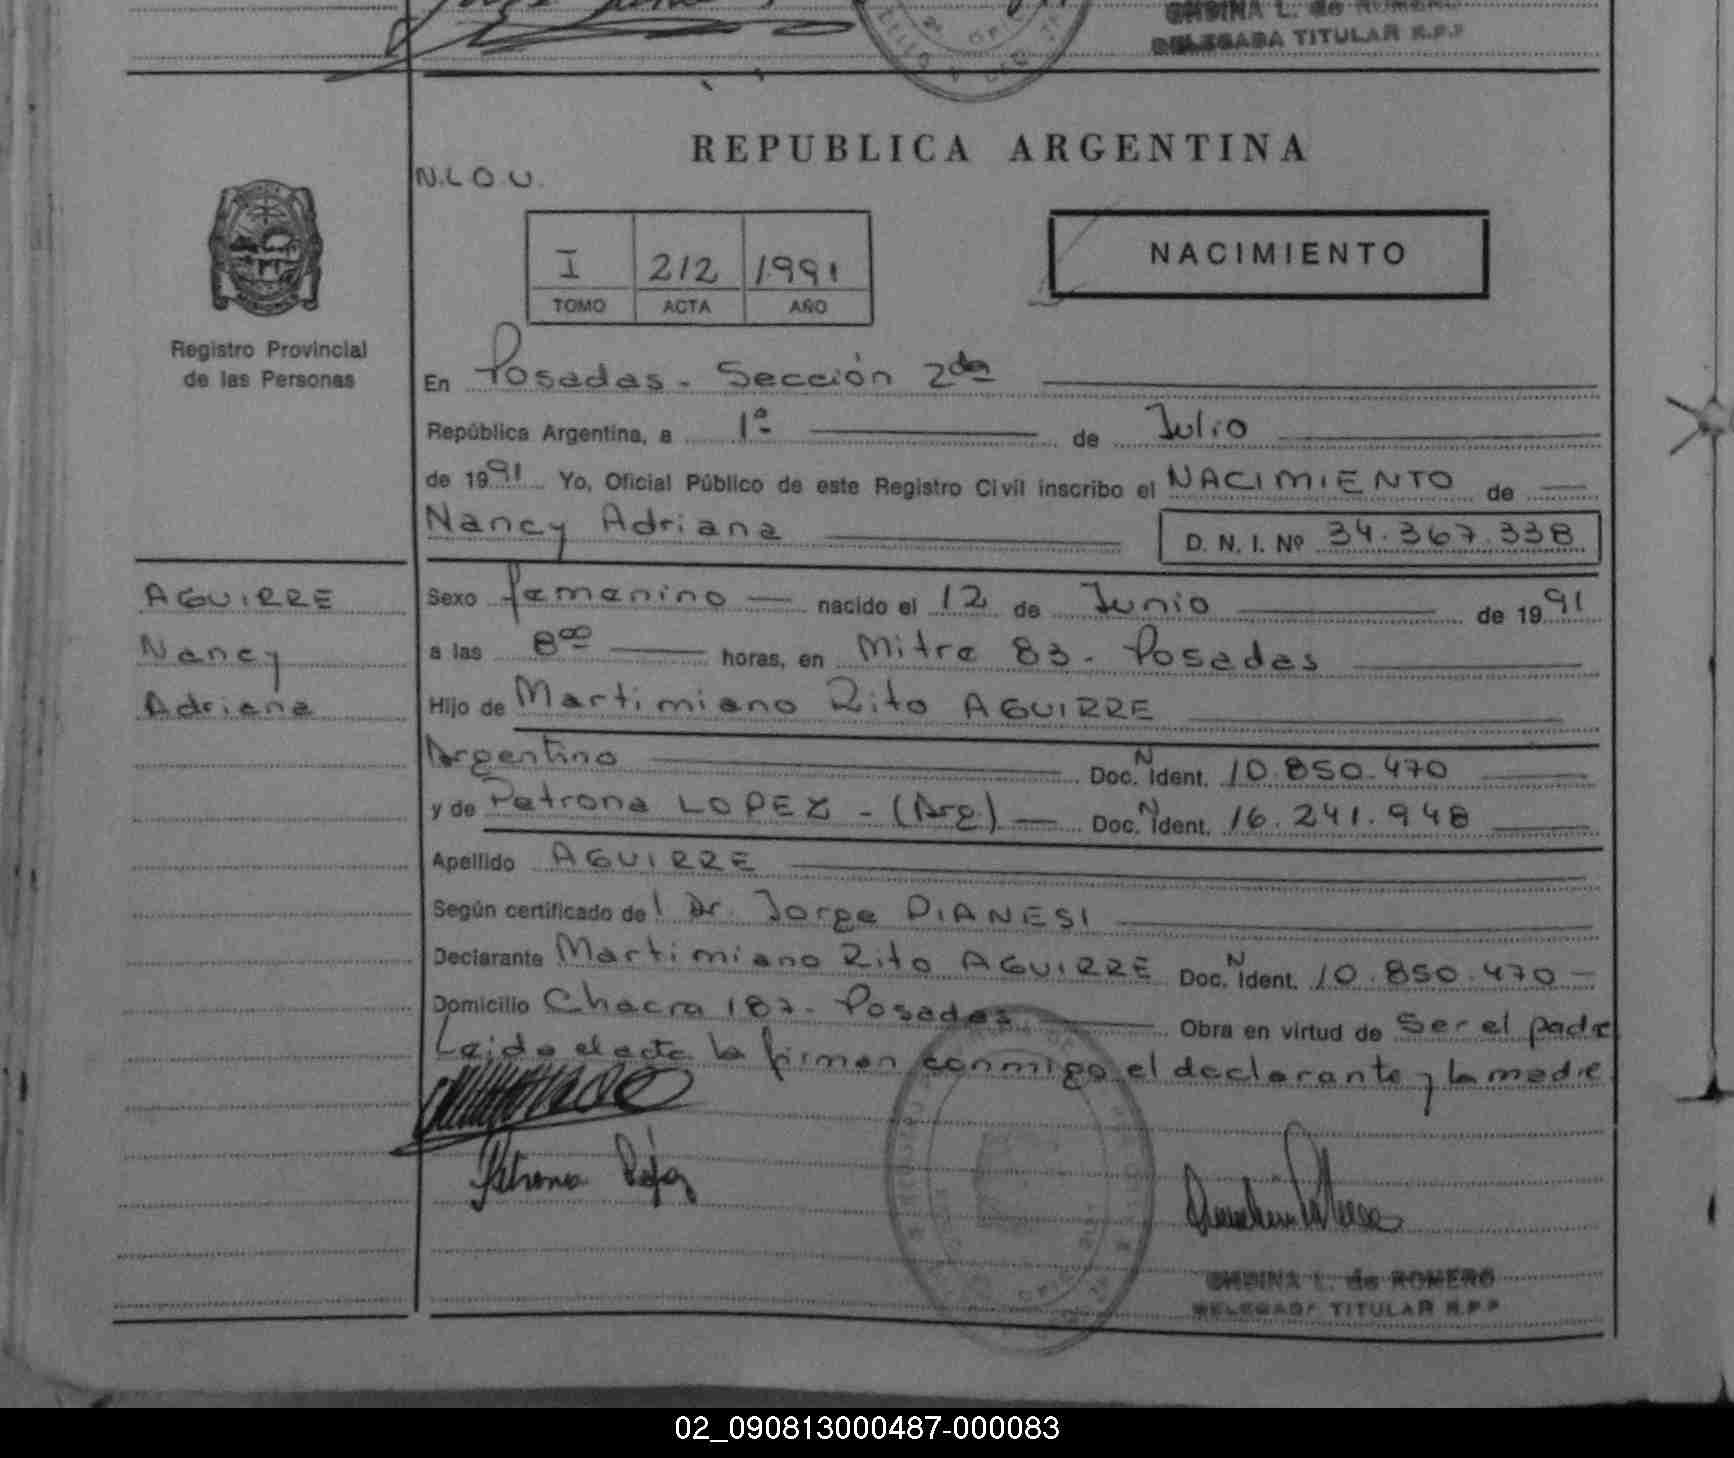 L. de ROMERO
DELEGADA TITULAR R.P.P
REPUBLICA ARGENTINA
N.L.O.U.
I 212 1991
TOMO ACTA AÑO
NACIMIENTO
Registro Provincial
de las Personas
En Posadas - Sección 2da
República Argentina, a 1º de Julio
de 1991 Yo, Oficial Público de este Registro Civil inscribo el NACIMIENTO de
Nancy Adriana D. N. I. Nº 34.367.338
AGUIRRE
Nancy
Adriana
Sexo femenino nacido el 12 de Junio de 1991
a las 8 00 horas, en Mitre 83 - Posadas
Hijo de Martimiano Rito AGUIRRE
Argentino Doc. N Ident. 10.850.470
y de Petrona LOPEZ - (Arg) Doc. N Ident. 16.241.948
Apellido AGUIRRE
Según certificado del Dr. Jorge DIANESI
Declarante Martimiano Rito AGUIRRE Doc. N Ident. 10.850.470
Domicilio Chacra 187 - Posadas Obra en virtud de Ser el padre
Leido el acta la firman conmigo el declarante y la madre
Petrona Lopez
L. de ROMERO
DELEGADA TITULAR R.P.P
02_090813000487-000083